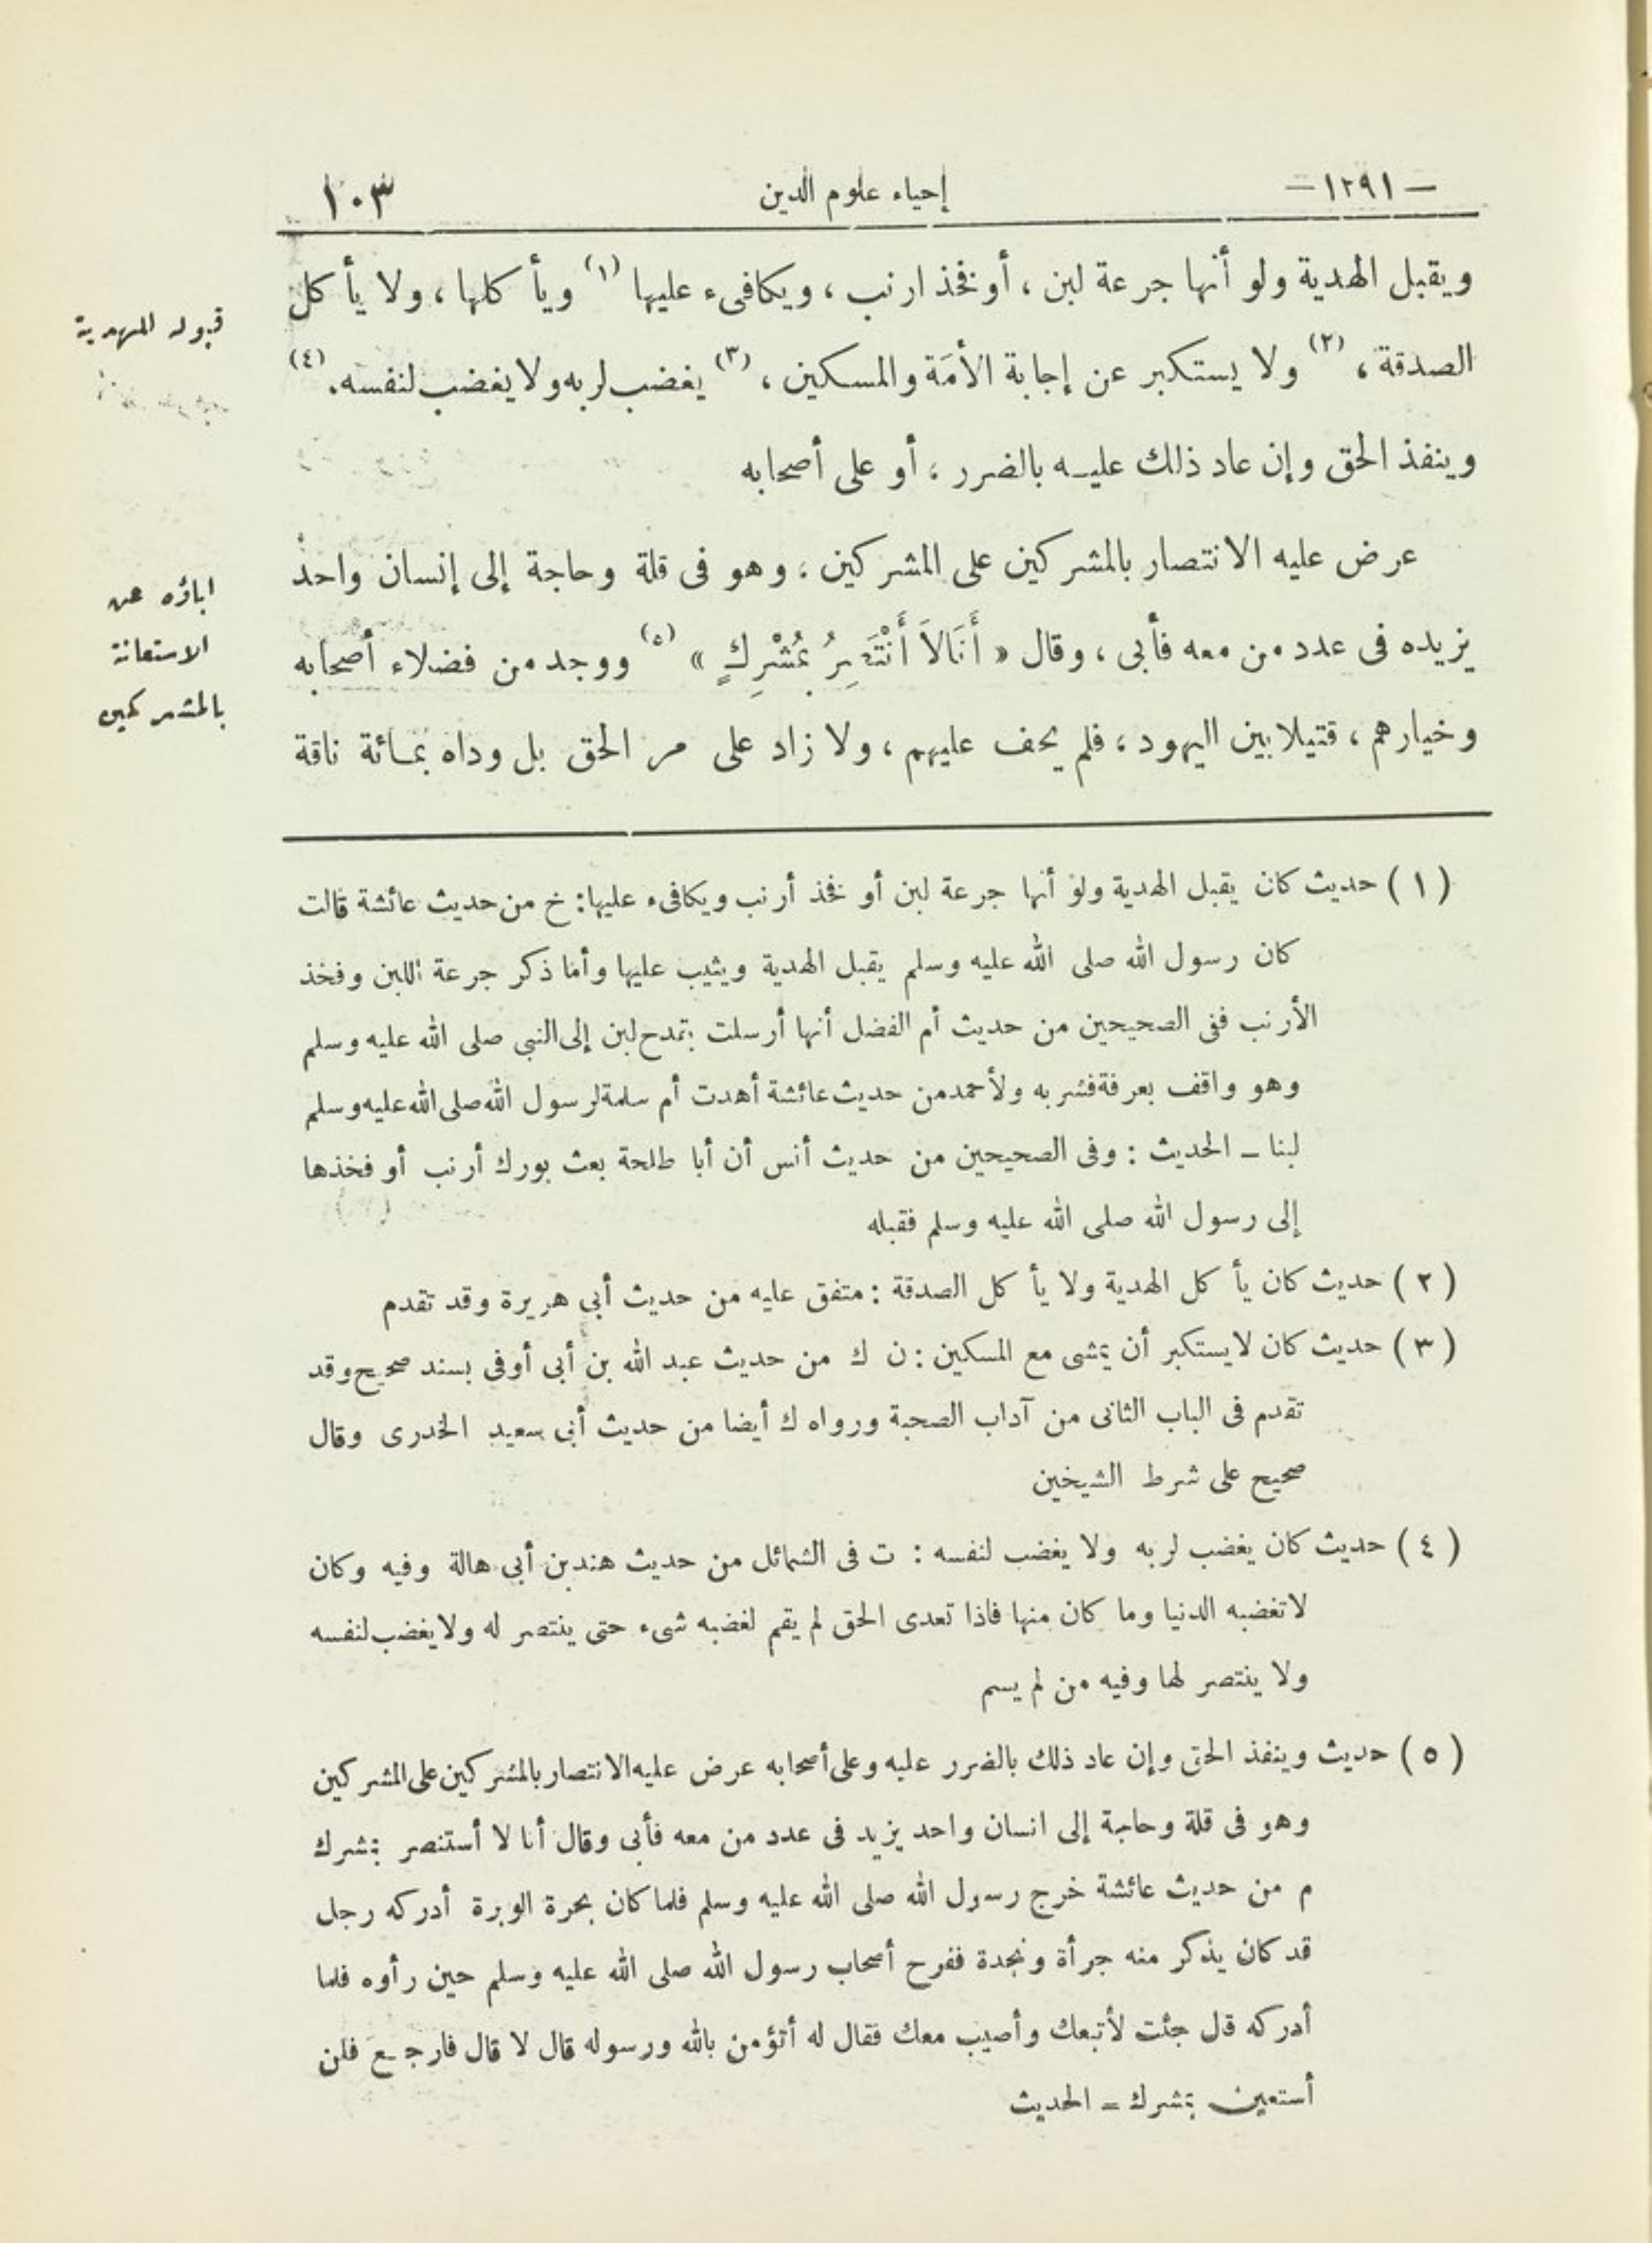 — ١٢٩١ — إحياء علوم الدين ١٠٣
ويقبل الهدية ولو أنها جرعة لبن ، أو فخذ ارنب ، ويكافىء عليها (١) ويأكلها ، ولا يأكل
قبوله الهدية
الصدقة ، (٢) ولا يستكبر عن إجابة الأمَة والمسكين ، (٣) يغضب لربه ولا يغضب لنفسه . (٤)
وينفذ الحق وإن عاد ذلك عليه بالضرر ، أو على أصحابه
عرض عليه الانتصار بالمشركين على المشركين ، وهو فى قلة وحاجة إلى إنسان واحد
اباؤه عن
الاستعانة
بالمشركين
يزيده فى عدد من معه فأبى ، وقال « أَنَا لاَ أَنْتَصِرُ بِمُشْرِكٍ » (٥) ووجد من فضلاء أصحابه
وخيارهم ، قتيلا بين اليهود ، فلم يحف عليهم ، ولا زاد على مر الحق بل وداه بمائة ناقة
( ١ ) حديث كان يقبل الهدية ولو أنها جرعة لبن أو فخذ أرنب ويكافىء عليها : خ من حديث عائشة قالت
كان رسول الله صلى الله عليه وسلم يقبل الهدية ويثيب عليها وأما ذكر جرعة اللبن وفخذ
الأرنب ففى الصحيحين من حديث أم الفضل أنها أرسلت بقدح لبن إلى النبي صلى الله عليه وسلم
وهو واقف بعرفة فشربه ولأحمد من حديث عائشة أهدت أم سلمة لرسول الله صلى الله عليه وسلم
لبنا – الحديث : وفى الصحيحين من حديث أنس أن أبا طلحة بعث بورك أرنب أو فخذها
إلى رسول الله صلى الله عليه وسلم فقبله
( ٢ ) حديث كان يأكل الهدية ولا يأكل الصدقة : متفق عليه من حديث أبى هريرة وقد تقدم
( ٣ ) حديث كان لا يستكبر أن يمشى مع المسكين : ن ك من حديث عبد الله بن أبى أوفى بسند صحيح وقد
تقدم فى الباب الثانى من آداب الصحبة ورواه ك أيضا من حديث أبى سعيد الخدرى وقال
صحيح على شرط الشيخين
( ٤ ) حديث كان يغضب لربه ولا يغضب لنفسه : ت فى الشمائل من حديث هند بن أبى هالة وفيه وكان
لا تغضبه الدنيا وما كان منها فاذا تعدى الحق لم يقم لغضبه شىء حتى ينتصر له ولا يغضب لنفسه
ولا ينتصر لها وفيه من لم يسم
( ٥ ) حديث وينفذ الحق وإن عاد ذلك بالضرر عليه وعلى أصحابه عرض عليه الانتصار بالمشركين على المشركين
وهو فى قلة وحاجة إلى انسان واحد يزيد فى عدد من معه فأبى وقال أنا لا أستنصر بمشرك
م من حديث عائشة خرج رسول الله صلى الله عليه وسلم فلما كان بحرة الوبرة أدركه رجل
قد كان يذكر منه جرأة ونجدة ففرح أصحاب رسول الله صلى الله عليه وسلم حين رأوه فلما
أدركه قال جئت لأتبعك وأصيب معك فقال له أتؤمن بالله ورسوله قال لا قال فارجع فلن
أستعين بمشرك – الحديث